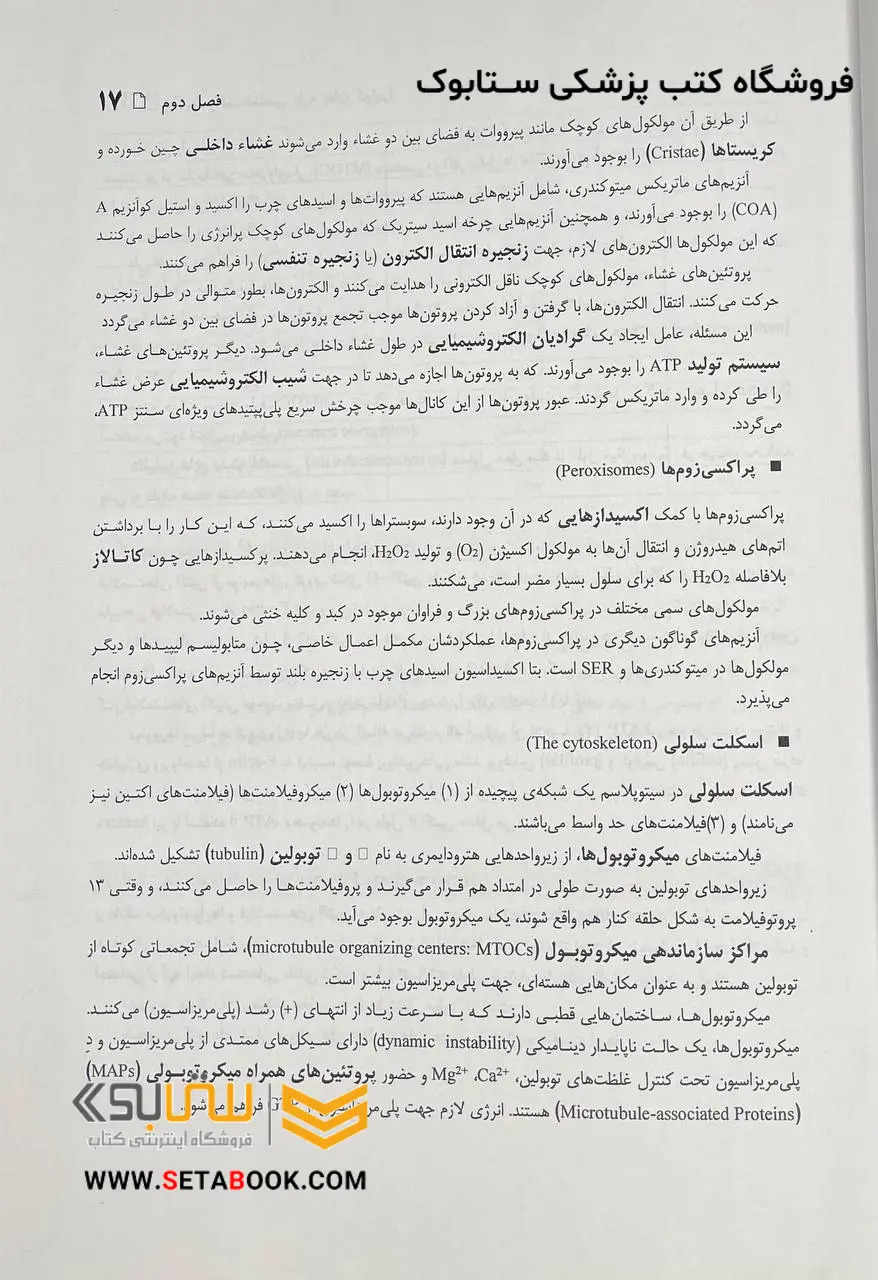 فروشگاه کتب پزشکی ستابوک
فصل دوم 17
از طریق آن مولکول‌های کوچک مانند پیرووات به فضای بین دو غشاء وارد می‌شوند غشاء داخلی چین خورده و
کریستاها (Cristae) را بوجود می‌آورند.
آنزیم‌های ماتریکس میتوکندری، شامل آنزیم‌هایی هستند که پیرووات‌ها و اسیدهای چرب را اکسید و استیل کوآنزیم A
(COA) را بوجود می‌آورند، و همچنین آنزیم‌هایی چرخه اسید سیتریک که مولکول‌های کوچک پرانرژی را حاصل می‌کنند
که این مولکول‌ها الکترون‌های لازم، جهت زنجیره انتقال الکترون (یا زنجیره تنفسی) را فراهم می‌کنند.
پروتئین‌های غشاء، مولکول‌های کوچک ناقل الکترونی را هدایت می‌کنند و الکترون‌ها، بطور متوالی در طول زنجیره
حرکت می‌کنند. انتقال الکترون‌ها، با گرفتن و آزاد کردن پروتون‌ها موجب تجمع پروتون‌ها در فضای بین دو غشاء می‌گردد
این مسئله، عامل ایجاد یک گرادیان الکتروشیمیایی در طول غشاء داخلی می‌شود. دیگر پروتئین‌های غشاء،
سیستم تولید ATP را بوجود می‌آورند. که به پروتون‌ها اجازه می‌دهد تا در جهت شیب الکتروشیمیایی عرض غشاء
را طی کرده و وارد ماتریکس گردند. عبور پروتون‌ها از این کانال‌ها موجب چرخش سریع پلی‌پپتیدهای ویژه‌ای سنتز ATP،
می‌گردد.
■ پراکسی‌زوم‌ها (Peroxisomes)
پراکسی‌زوم‌ها با کمک اکسیدازهایی که در آن وجود دارند، سوبستراها را اکسید می‌کنند، که این کار را با برداشتن
اتم‌های هیدروژن و انتقال آن‌ها به مولکول اکسیژن (O₂) و تولید H₂O₂، انجام می‌دهند. پرکسیدازهایی چون کاتالاز
بلافاصله H₂O₂ را که برای سلول بسیار مضر است، می‌شکنند.
مولکول‌های سمی مختلف در پراکسی‌زوم‌های بزرگ و فراوان موجود در کبد و کلیه خنثی می‌شوند.
آنزیم‌های گوناگون دیگری در پراکسی‌زوم‌ها، عملکردشان مکمل اعمال خاصی، چون متابولیسم لیپیدها و دیگر
مولکول‌ها در میتوکندری‌ها و SER است. بتا اکسیداسیون اسیدهای چرب با زنجیره بلند توسط آنزیم‌های پراکسی‌زوم انجام
می‌پذیرد.
■ اسکلت سلولی (The cytoskeleton)
اسکلت سلولی در سیتوپلاسم یک شبکه‌ی پیچیده از (۱) میکروتوبول‌ها (۲) میکروفیلامنت‌ها (فیلامنت‌های اکتین نیز
می‌نامند) و (۳)فیلامنت‌های حد واسط می‌باشند.
فیلامنت‌های میکروتوبول‌ها، از زیرواحدهایی هترودایمری به نام □ و □ توبولین (tubulin) تشکیل شده‌اند.
زیرواحدهای توبولین به صورت طولی در امتداد هم قرار می‌گیرند و پروفیلامنت‌ها را حاصل می‌کنند، و وقتی ۱۳
پروتوفیلامت به شکل حلقه کنار هم واقع شوند، یک میکروتوبول بوجود می‌آید.
مراکز سازماندهی میکروتوبول (microtubule organizing centers: MTOCs)، شامل تجمعاتی کوتاه از
توبولین هستند و به عنوان مکان‌هایی هسته‌ای، جهت پلی‌مریزاسیون بیشتر است.
میکروتوبول‌ها، ساختمان‌هایی قطبی دارند که با سرعت زیاد از انتهای (+) رشد (پلی‌مریزاسیون) می‌کنند.
میکروتوبول‌ها، یک حالت ناپایدار دینامیکی (dynamic instability) دارای سیکل‌های ممتدی از پلی‌مریزاسیون و دِ
پلی‌مریزاسیون تحت کنترل غلظت‌های توبولین، Mg²⁺ ،Ca²⁺ و حضور پروتئین‌های همراه میکروتوبولی (MAPs)
(Microtubule-associated Proteins) هستند. انرژی لازم جهت
ستابوک
فروشگاه اینترنتی کتاب
WWW.SETABOOK.COM